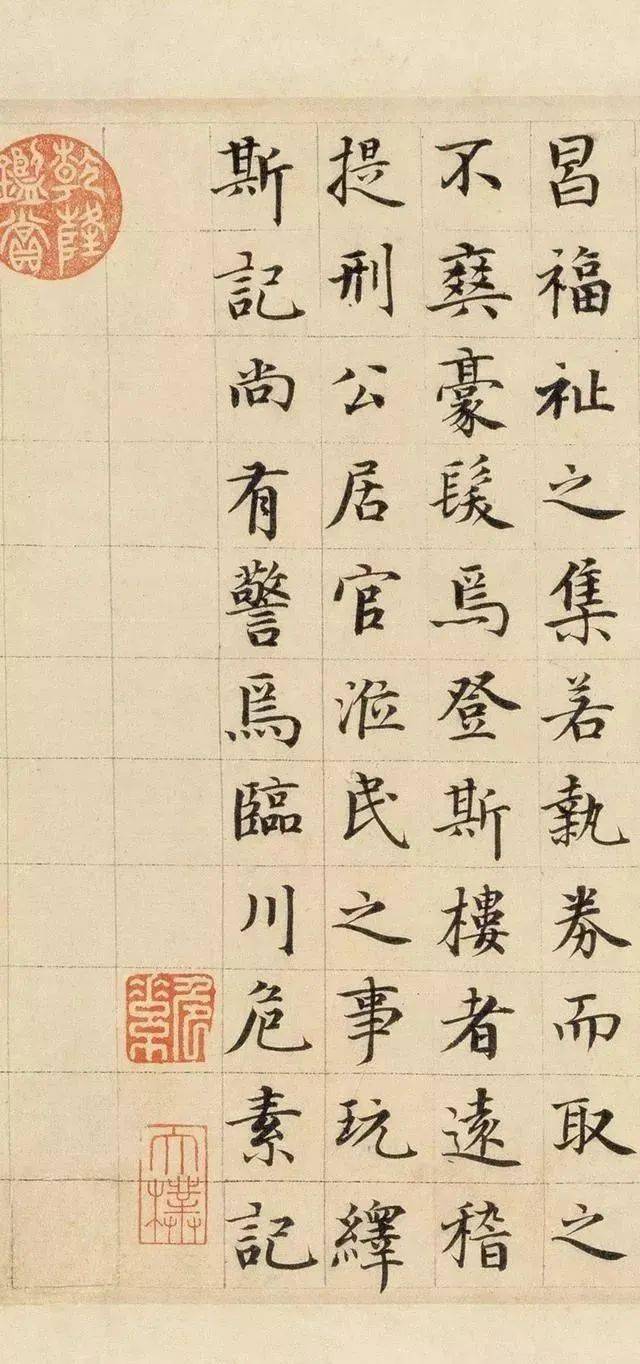 昌福祉之集若執券而取之
不爽豪髮焉登斯樓者遠稽
提刑公居官涖民之事玩繹
斯記尚有警焉臨川危素記
危素
太樸
乾隆鑑賞